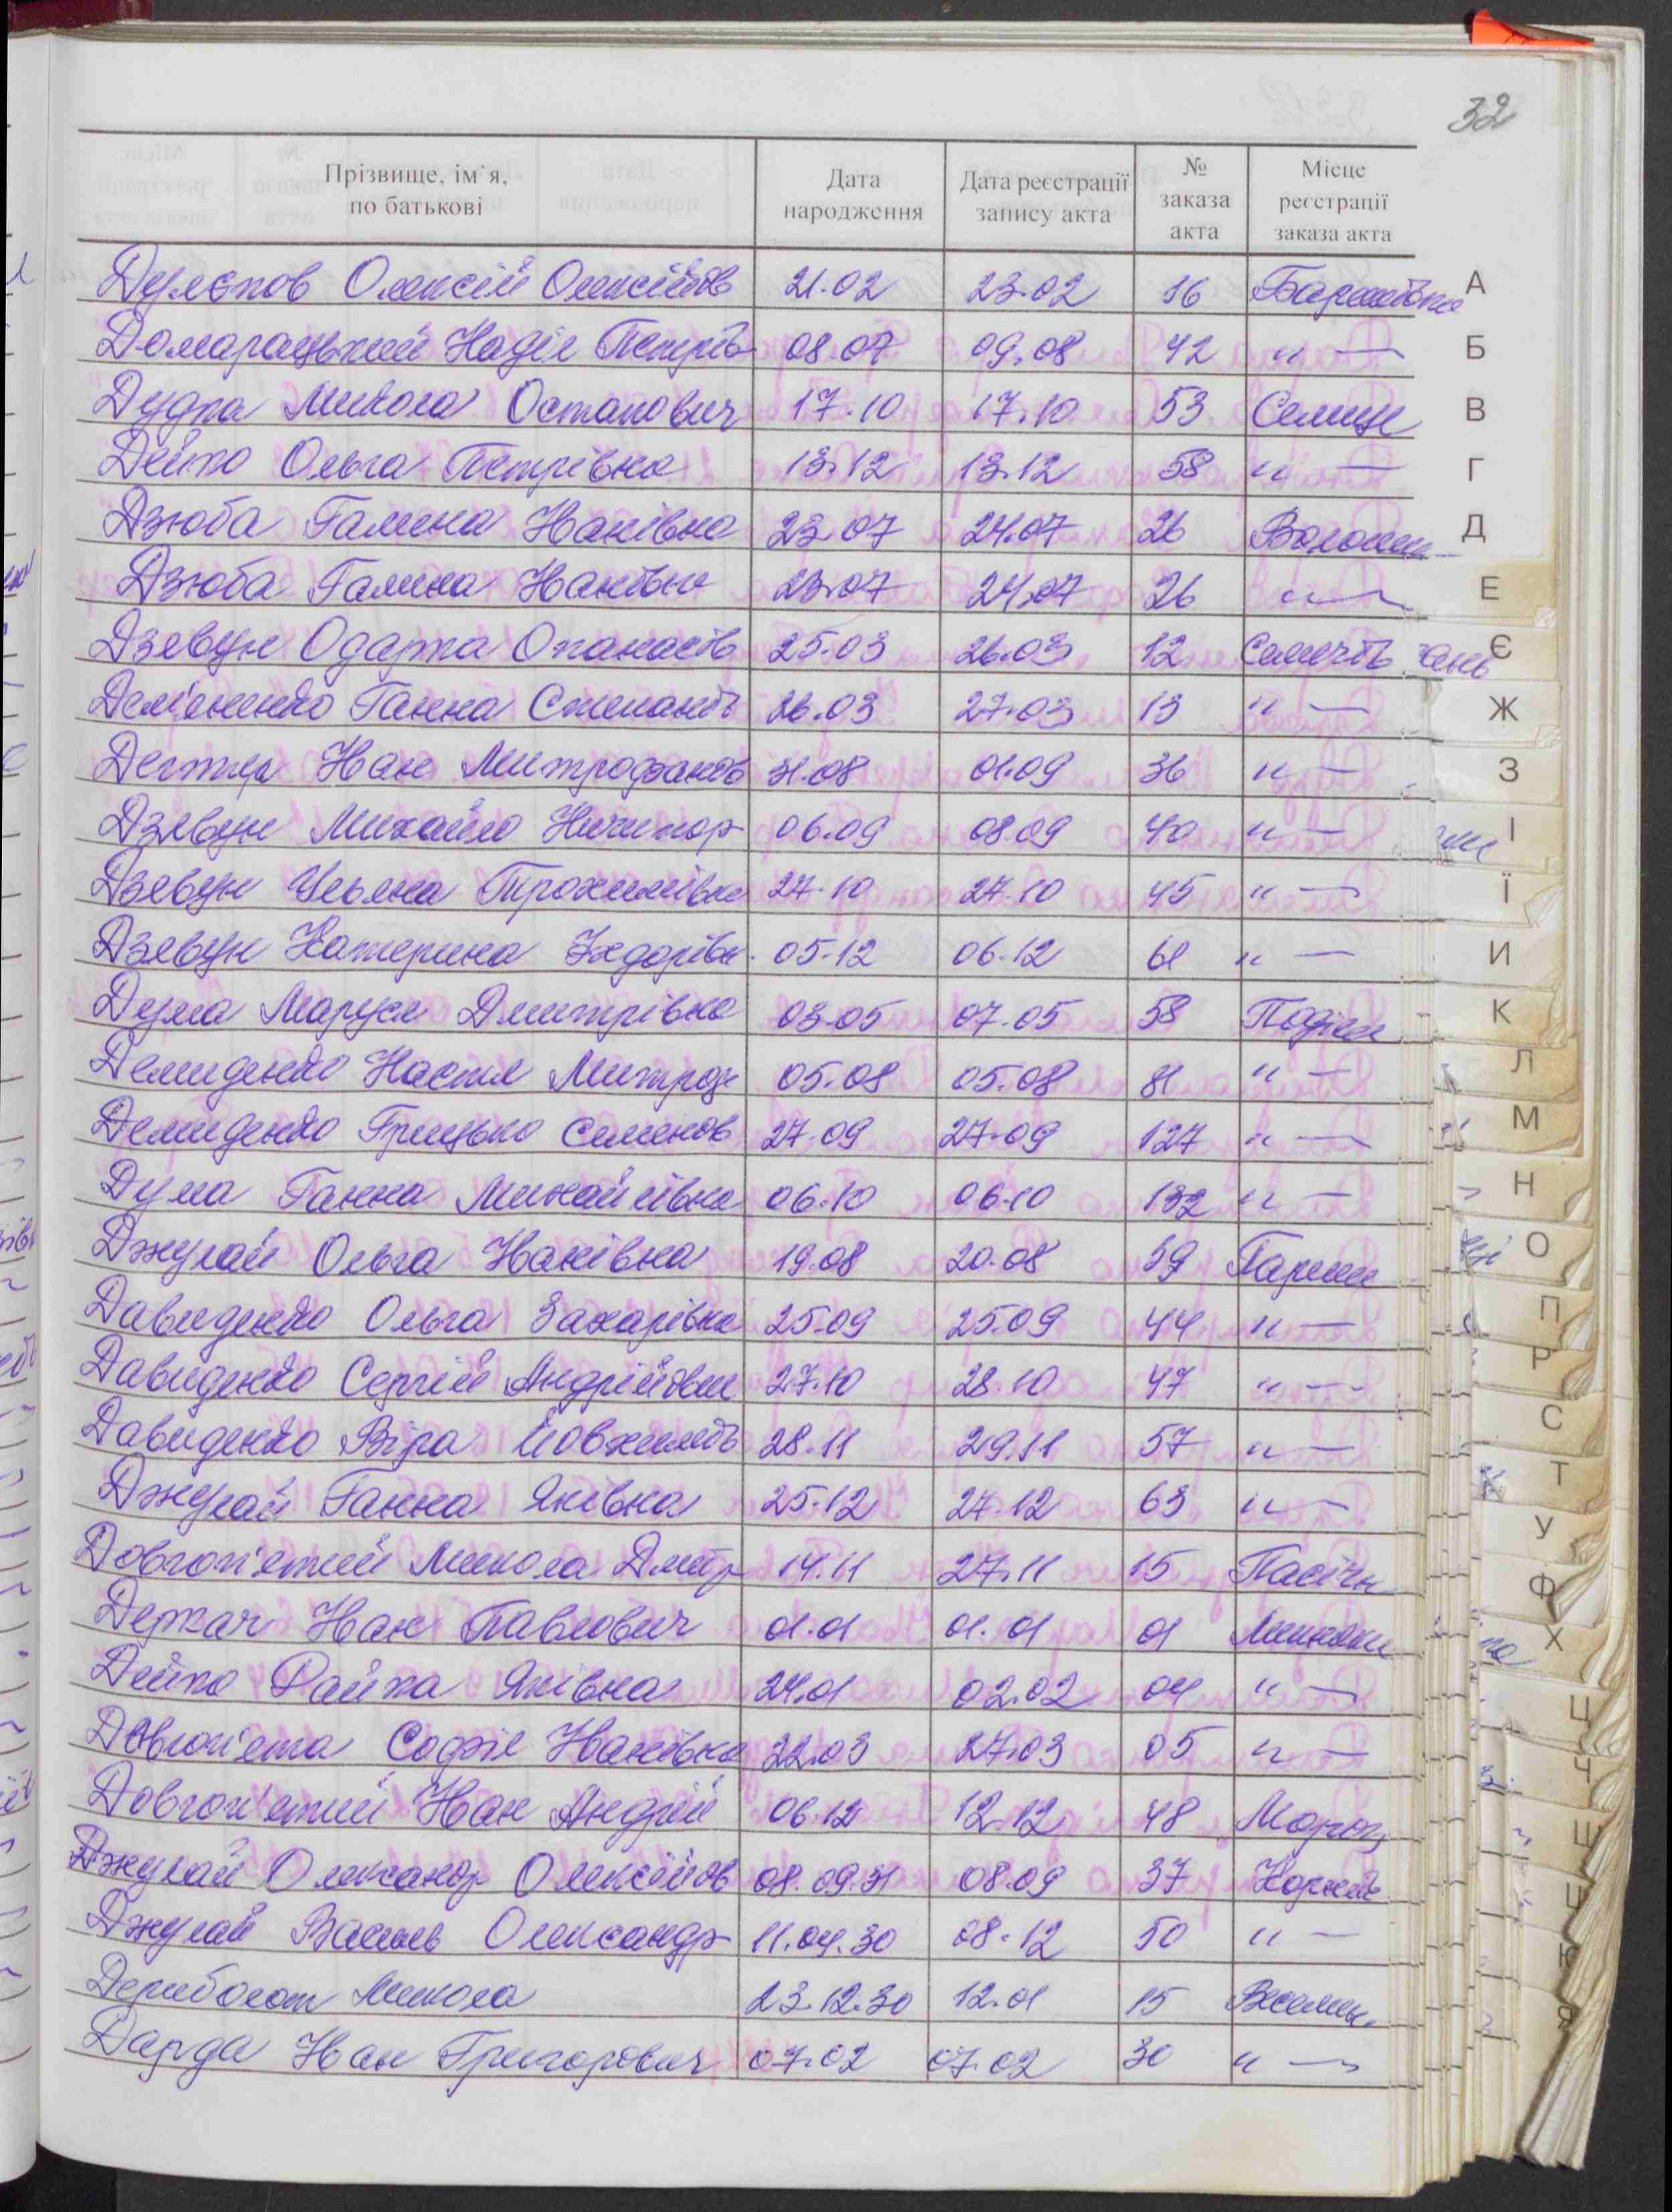 32
Прізвище, ім`я, по батькові | Дата народження | Дата реєстрації запису акта | № заказа акта | Місце реєстрації заказа акта
Дулєпов Олексій Олексійов 21.02 23.02 16
Домарацький Надія Петрів 08.07 09.08 42 " —
Дудка Микола Остапович 17.10 17.10 53 Селище
Дейко Ольга Петрівна 13.12 13.12 58 " —
Дзюба Галина Іванівна 23.07 24.07 26 Волошин
Дзюба Галина Іванівна 23.07 24.07 26 " —
Дзевун Одарка Опанасів 25.03 26.03 12
Дем'яненко Ганна Степанів 26.03 27.03 13 " —
Дегтяр Іван Митрофанов 31.08 01.09 36 " —
Дзевун Михайло Ничипор 06.09 08.09 40 " —
Дзевун Уляна Трохимівна 27.10 27.10 45 " —
Дзевун Катерина Федорівн. 05.12 06.12 61 " —
Дума Маруся Дмитрівна 03.05 07.05 58
Демиденко Настя Митроф 05.08 05.08 81 " —
Демиденко Грицько Семенов 27.09 27.09 127 " —
Дума Ганна Михайлівна 06.10 06.10 132 " —
Джулай Ольга Іванівна 19.08 20.08 39
Давиденко Ольга Захарівна 25.09 25.09 44 " —
Давиденко Сергій Андрійович 27.10 28.10 47 " —
Давиденко Віра Йовхимів 28.11 29.11 57 " —
Джулай Ганна Яківна 25.12 27.12 63 " —
Довгоп'ятий Микола Дмитр 14.11 27.11 15 Пасічн
Деркач Іван Павлович 01.01 01.01 01
Дейко Райка Яківна 24.01 02.02 04 " —
Довгоп'ята Софія Іванівна 22.03 27.03 05 " —
Довгоп'ятий Іван Андрій 06.12 12.12 48 Мороз
Джулай Олександр Олексійов 08.09.31 08.09 37 Корнів
Джулай Василь Олександр 11.04.30 08.12 50 " —
Дерибогат Микола 23.12.30 12.01 15
Дарда Іван Григорович 07.02 07.02 30 " —
А
Б
В
Г
Д
Е
Є
Ж
З
І
Ї
И
К
Л
М
Н
О
П
Р
С
Т
У
Ф
Х
Ц
Ч
Ш
Щ
Ю
Я